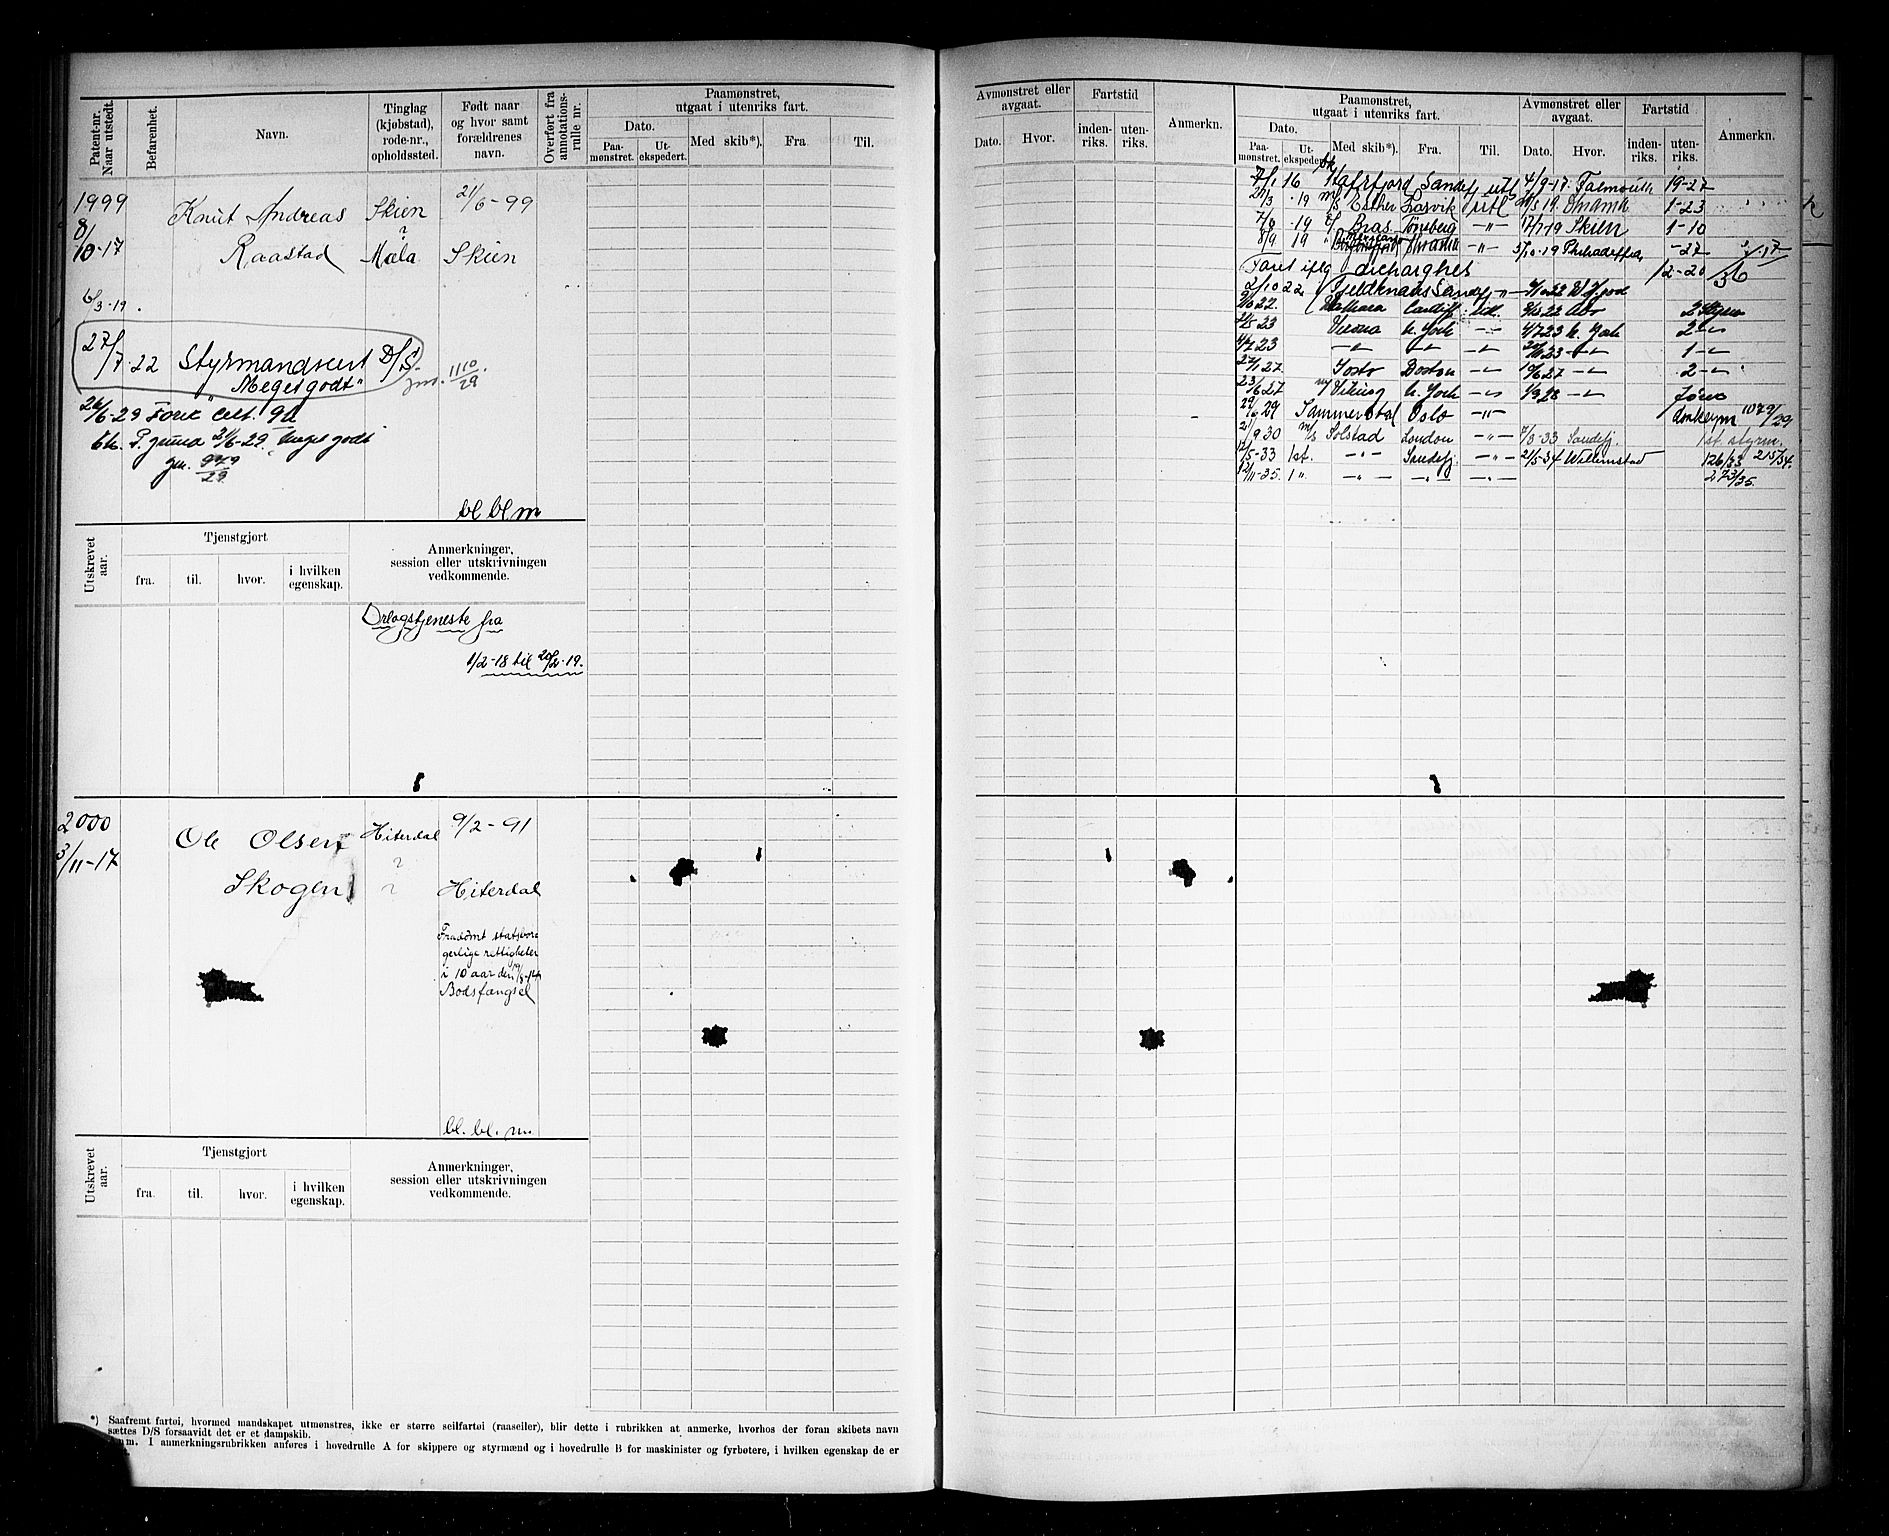 Patent-nr. Naar utstedt.
Befarenhet.
Navn.
Tinglag (kjøbstad), rode-nr., opholdssted.
Født naar og hvor samt forældrenes navn.
Overført fra annotations-rulle nr.
Paamønstret, utgaat i utenriks fart.
Dato.
Paa-mønstret.
Ut-ekspedert.
Med skib*).
Fra.
Til.
1999
8/10-17
6/3-19.
Knut Andreas
Raastad
Skien
Mæla
21/6-99
Skien
27/7-22 Styrmandscert D/S.
"Meget godt"
jnr. 1110/29
26/6-29 Fører Cert. 92
"Meget godt"
jnr. 979/29
bl bl m
Utskrevet aar.
Tjenstgjort
fra.
til.
hvor.
i hvilken egenskap.
Anmerkninger, session eller utskrivningen vedkommende.
Orlogstjeneste fra
1/2-18 til 20/2-19.
2000
3/11-17
Ole Olsen
Skogen
Hiterdal
?
9/2-91
Hiterdal
Fradømt statsbor
gerlige rettigheter
i 10 aar den
Bodsfængsel
bl. bl. m.
Utskrevet aar.
Tjenstgjort
fra.
til.
hvor.
i hvilken egenskap.
Anmerkninger, session eller utskrivningen vedkommende.
*) Saafremt fartøi, hvormed mandskapet utmønstres, ikke er større seilfartøi (raaseiler), blir dette i rubrikken at anmerke, hvorhos der foran skibets navn
sættes D/S forsaavidt det er et dampskib.
I anmerkningsrubrikken anføres i hovedrulle A for skippere og styrmænd og i hovedrulle B for maskinister og fyrbøtere, i hvilken egenskap de er
Avmønstret eller avgaat.
Dato.
Hvor.
Fartstid
inden-riks.
uten-riks.
Anmerkn.
Paamønstret, utgaat i utenriks fart.
Dato.
Paa-mønstret.
Ut-ekspedert.
Med skib*).
Fra.
Til.
Avmønstret eller avgaat.
Dato.
Hvor.
Fartstid
inden-riks.
uten-riks.
Anmerkn.
7/1 16 Hafrsfjord Sandefj utl 4/9-17. Falmouth 19-27
21/3 19 M/S Esther Larvik utl 19. 1-23
7/6 19 Bras Tønsberg -"- 17/7-19 Skien 1-10
8/9 19 -"- 5/10-19 Philadelfia -27
Faret iflg discharghes 12-20
2/10 22 Fjeldknaus Sandefj
22. Cardiff 22
23 Verma N. York -"- 4/7 23 N. York 2
4/7 23 -"- -"- -"- 23 -"- 1 -"-
27/1 27. Sosto Boston -"- 19/6 27 -"- 2 -"-
23/6 27 Viking N. York -"- 1/9 28 -"-
29/6 29 Sammerstal Oslo -"- 1079/29
21/9 30 M/S Solstad London -"- 7/3-33 Sandefj. 1st. styrm.
12/5-33 1st. -"- Sandefj. -"- 21/5-34 Willemstad 126/33 215/34.
12/11-35. 1 " -"- -"- -"- 273/35.